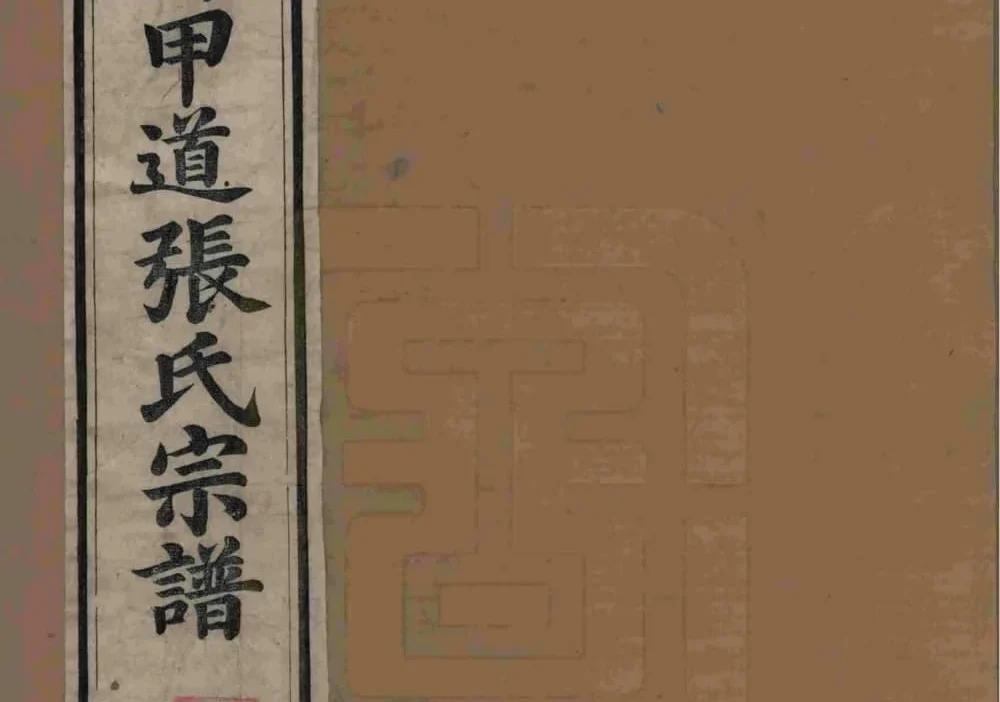 甲道張氏宗譜